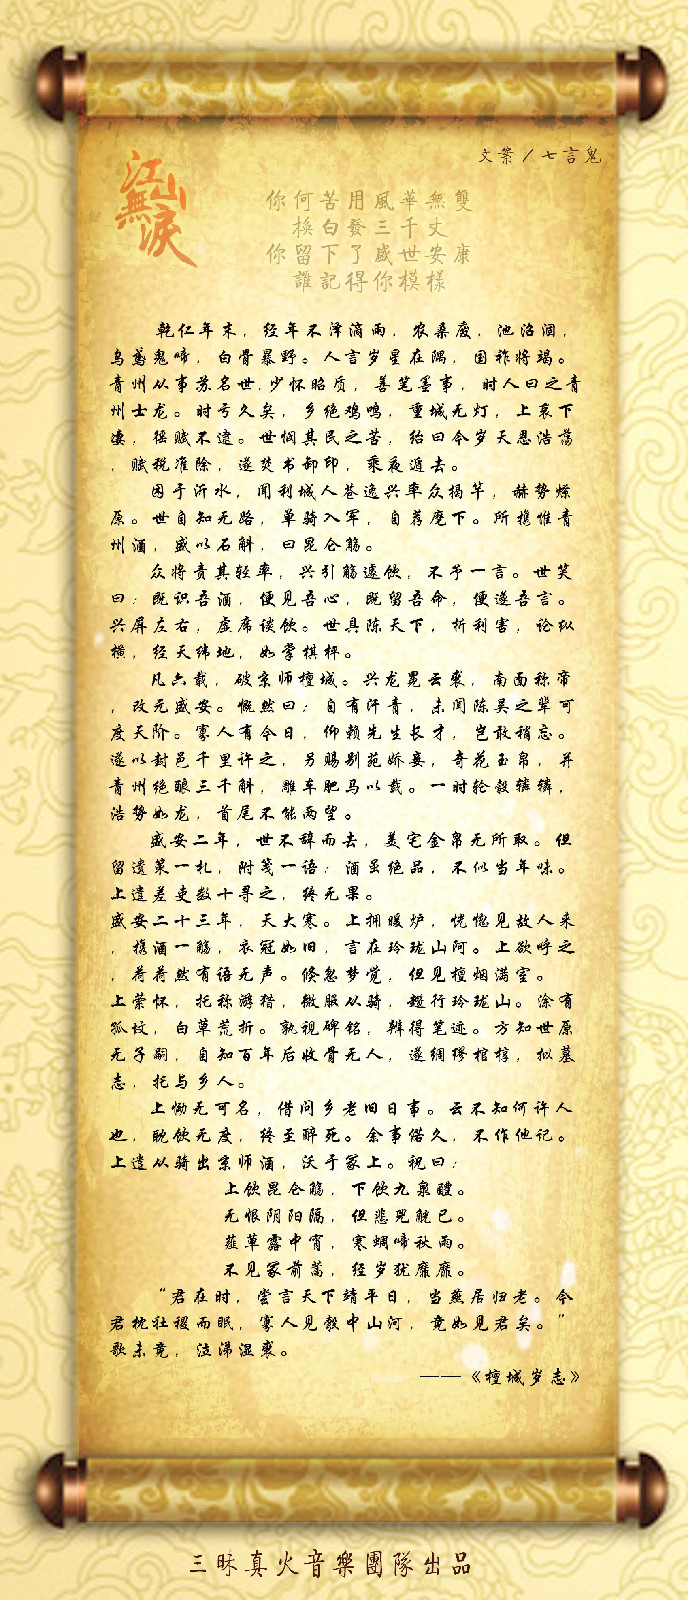 文案／七言鬼
江山無淚
你何苦用風華無雙
換白發三千丈
你留下了盛世安康
誰記得你模樣
乾仁年末，经年不泽滴雨，农桑废，池沼涸，
乌鸢鬼啼，白骨暴野。人言岁星在隅，国祚将竭。
青州从事苏名世，少怀昭质，善笔墨事，时人曰之青
州士龙。时亏久矣，乡绝鸡鸣，重城无灯，上哀下
凄，徭赋不逮。世悯其民之苦，绐曰今岁天恩浩荡
，赋税准除，遂焚书卸印，乘夜遁去。
困于沂水，闻利城人苍逸兴率众揭竿，赫势燎
原。世自知无路，单骑入军，自荐麾下。所携惟青
州酒，盛以石斛，曰昆仑觞。
众将责其轻率，兴引觞遽饮，不予一言。世笑
曰：既识吾酒，便见吾心，既留吾命，便遂吾言。
兴屏左右，虚席谈饮。世具陈天下，析利害，论纵
横，经天纬地，如掌棋枰。
凡六载，破京师檀城。兴龙冕云裘，南面称帝
，改元盛安。慨然曰：自有汗青，未闻陈吴之辈可
度天阶。寡人有今日，仰赖先生长才，岂敢稍忘。
遂以封邑千里许之，另赐别苑娇妾，奇花玉帛，并
青州绝酿三千斛，雕车肥马以载。一时轮毂辚辚，
浩势如龙，首尾不能两望。
盛安二年，世不辞而去，美宅金帛无所取。但
留遗策一札，附笺一语：酒虽绝品，不似当年味。
上遣差吏数十寻之，终无果。
盛安二十三年，天大寒。上拥暖炉，恍惚见故人来
，携酒一觞，衣冠如旧，言在玲珑山河。上欲呼之
，荷荷然有语无声。倏忽梦觉，但见檀烟满室。
上萦怀，托称游猎，微服从骑，趱行玲珑山。涂有
孤坟，白草荒折。孰视碑铭，辨得笔迹。方知世原
无子嗣，自知百年后收骨无人，遂绸缪棺椁，拟墓
志，托与乡人。
上恸无可名，借问乡老旧日事。云不知何许人
也，耽饮无度，终至醉死。余事偌久，不作他记。
上遣从骑出京师酒，沃于冢上。祝曰：
上饮昆仑觞，下饮九泉醴。
无恨阴阳隔，但悲兕觥已。
薤草露中宵，寒蜩啼秋雨。
不见冢前蒿，经岁犹靡靡。
“君在时，尝言天下靖平日，当燕居归老。今
君枕社稷而眠，寡人见毂中山河，竟如见君矣。”
歌未竟，泣涕湿裘。
——《檀城岁志》
三昧真火音樂團隊出品